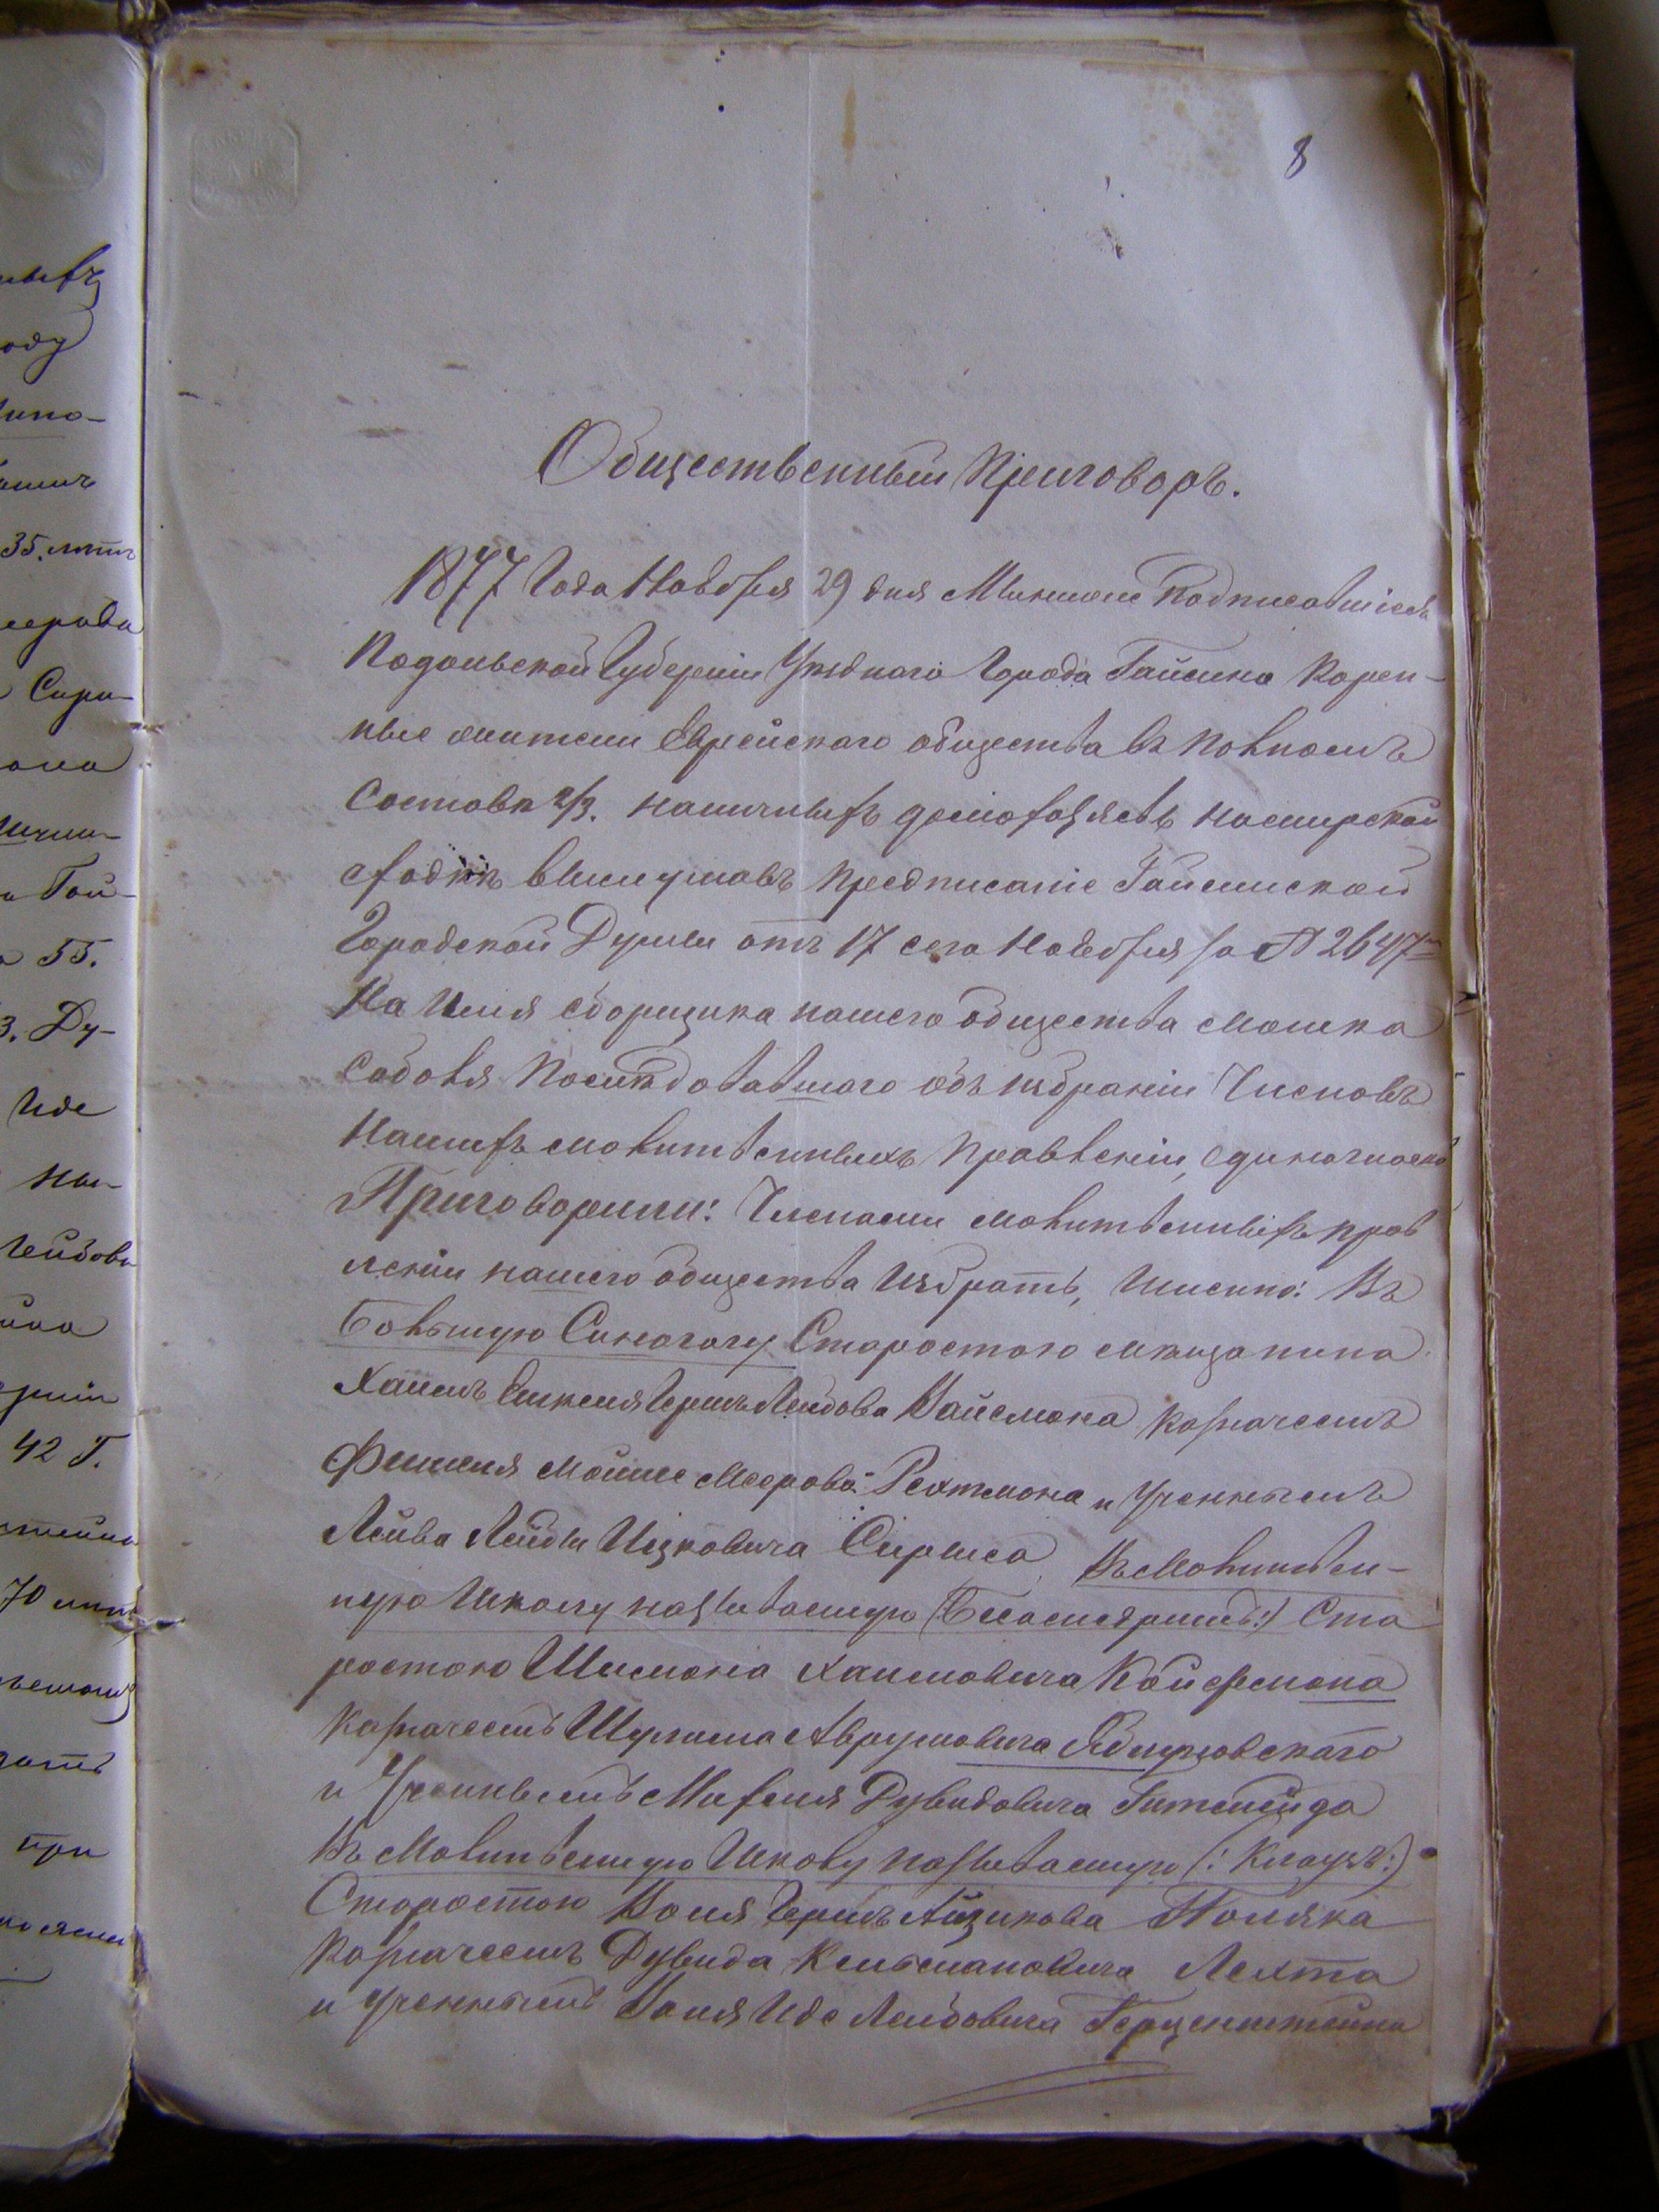 8
Общественный Приговоръ.
1877 Года Ноября 29 дня Мы ниже Подписавшіеся
Подольской Губерніи Уѣзднаго Города Гайсина Корен-
ные жители Еврейскаго общества въ Полномъ
Составѣ 2/3. наличныхъ домохозяевъ на мирской
сходкѣ выслушавъ Предписаніе Гайсинской
Городской Думы отъ 17 сего Ноября за № 2647
На Имя сборщика нашего общества Мошка
Соболя Послѣдовавшаго объ избраніи Членовъ
Нашихъ молитвенныхъ Правленій, единогласно
Приговорили: Членами молитвенныхъ прав
леній нашего общества Избрать, Именно: Въ
Большую Синагогу Старостою мѣщанина
Хаимъ Гершъ Лейбова Вайсмана Казначеемъ
Фишеля Мойше Меерова Рехтмана и Ученнымъ
Лейва Лейбы Ицковича Въ Молитвен-
ную Школу называемую Ста
ростою Шимона Хаимовича Койфмана
Казначеемъ Шулима Аврумовича Яблуновскаго
и Ученнымъ Михеля Дувидовича
Въ Молитвенную Школу называемую (: Клаузъ :)
Старостою Воля Герша Айзикова Поляка
Казначеемъ Дувида Кельмановича Лехта
и Ученнымъ Воля Иде Лейбовича Герценштейна
35. лѣтъ
55.
3. Ду-
Иде
42 Г.
при